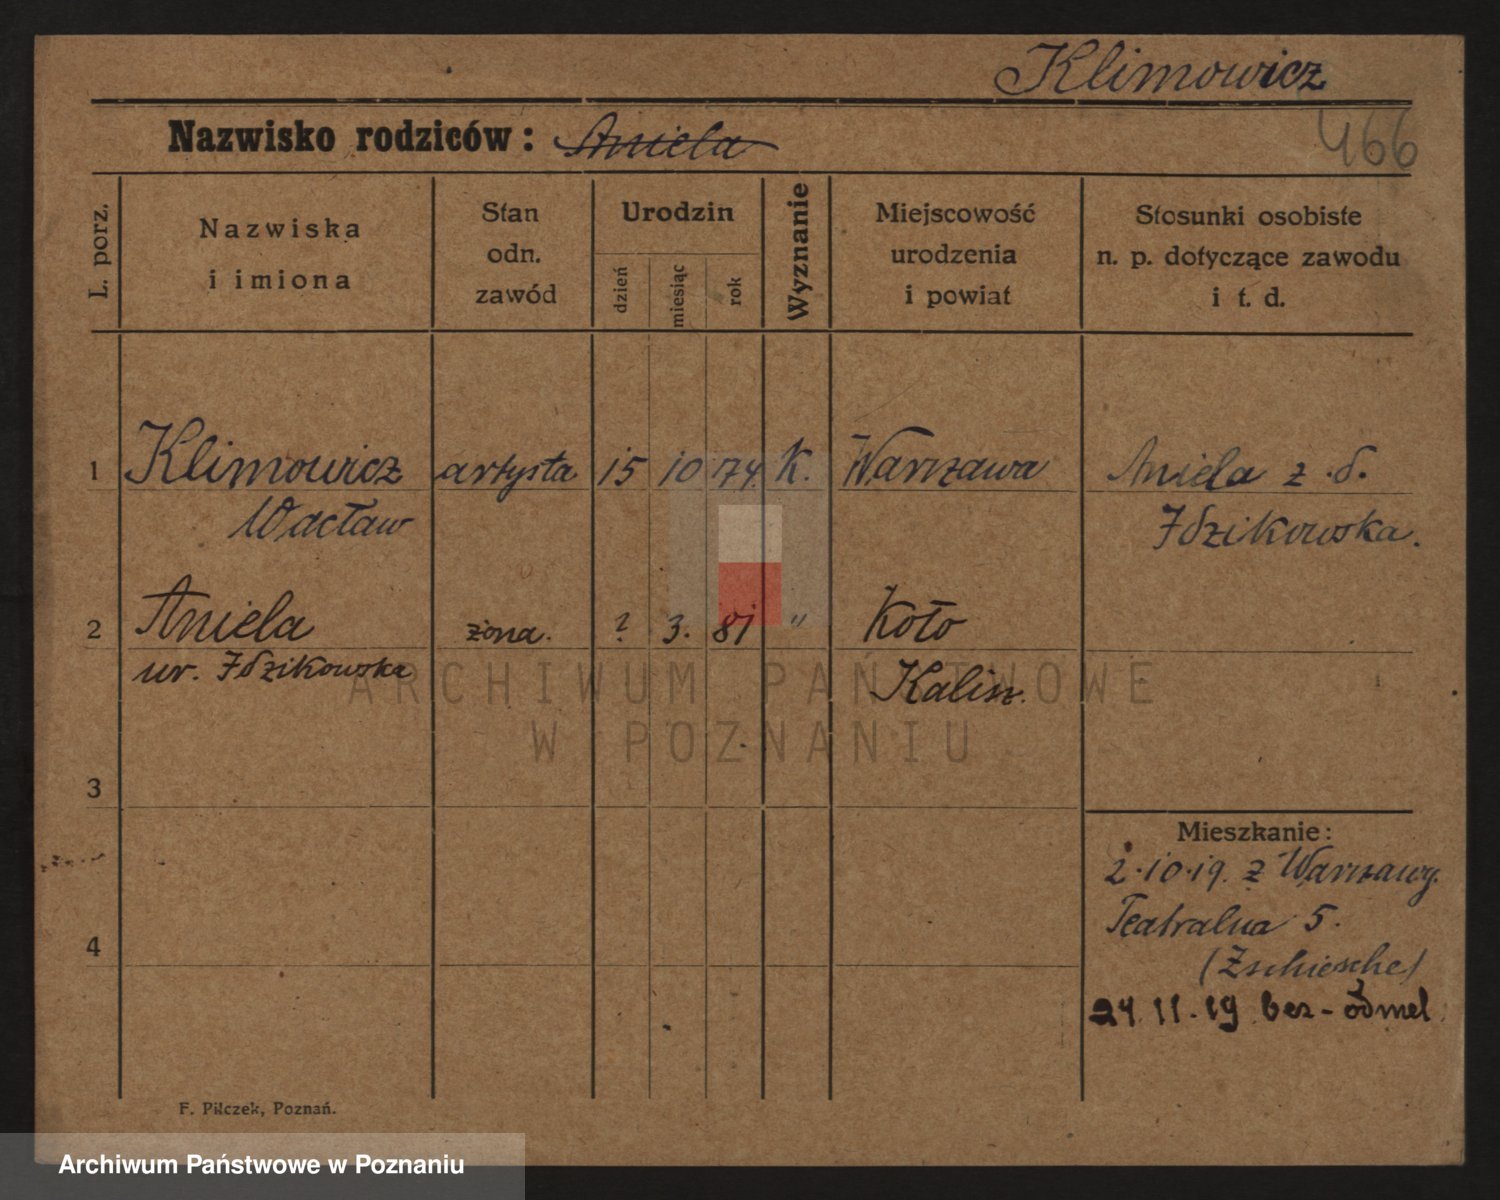 Klimowicz
466
Nazwisko rodziców: Aniela
L. porz.
Nazwiska
i imiona
Stan
odn.
zawód
Urodzin
dzień
miesiąc
rok
Wyznanie
Miejscowość
urodzenia
i powiat
Stosunki osobiste
n. p. dotyczące zawodu
i t. d.
1 Klimowicz artysta 15 10 74. K. Warszawa Aniela z .d.
Wacław Idzikowska.
2 Aniela żona. ? 3. 81 " Koło
ur. Idzikowska Kalisz.
ARCHIWUM PAŃSTWOWE
W POZNANIU
3
Mieszkanie:
2.10.19. z Warszawy.
Teatralna 5.
4
(Zschiesche)
24.11.19 bez-odmel.
F. Pilczek, Poznań.
Archiwum Państwowe w Poznaniu